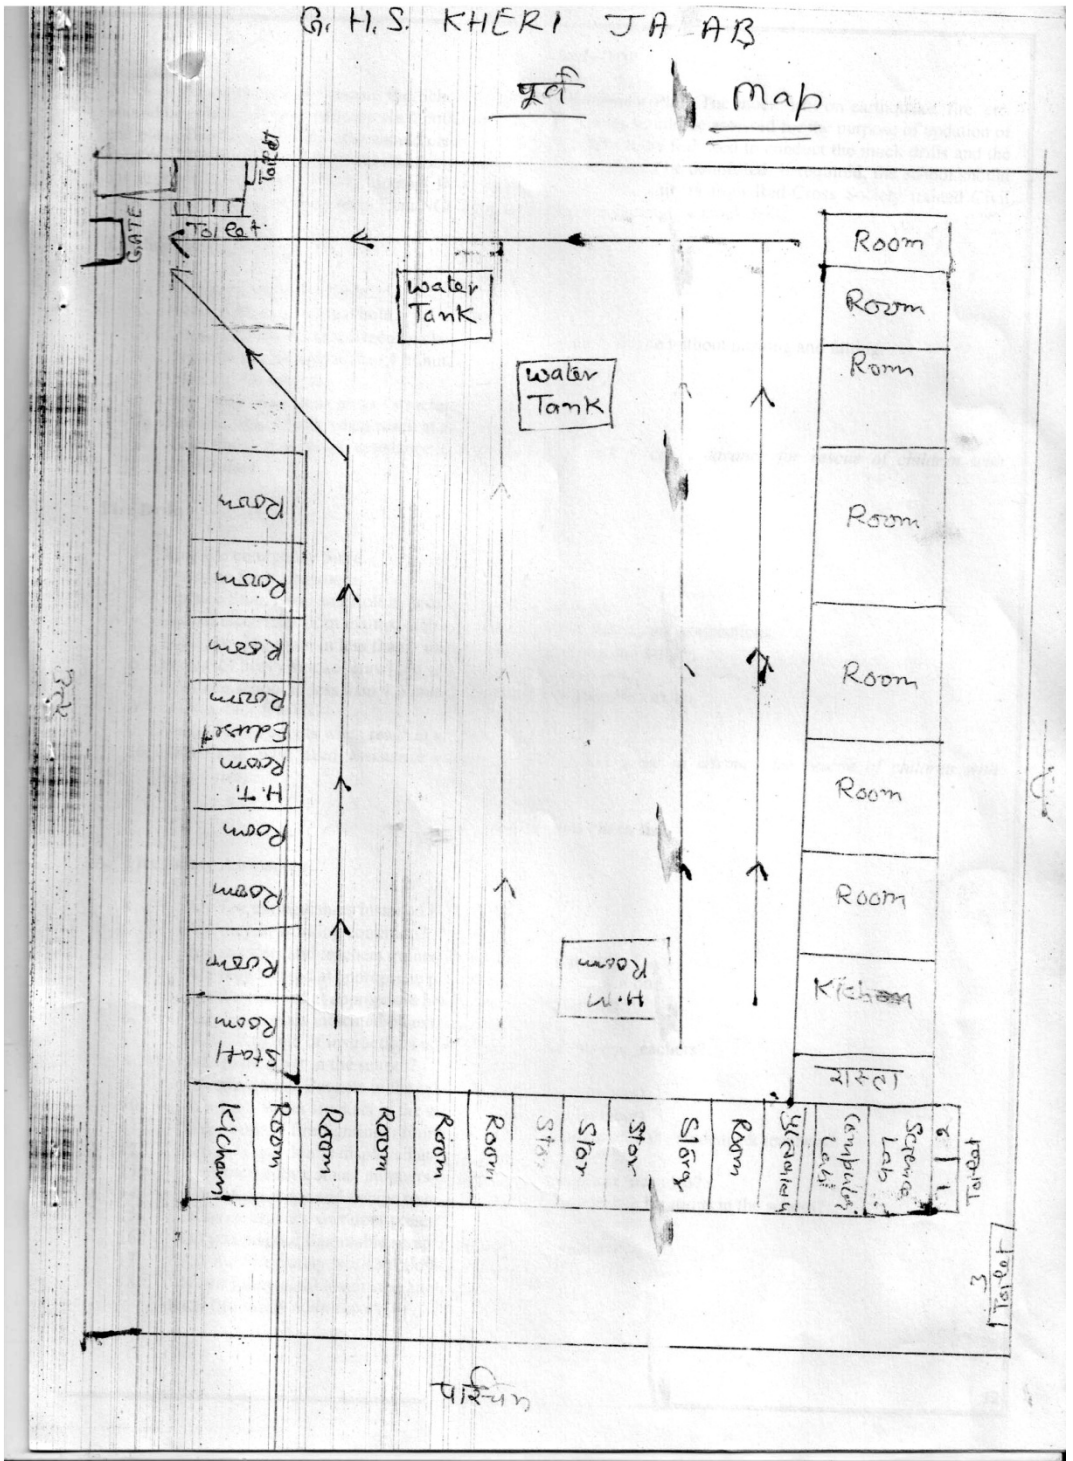 G. H.S. KHERI JA AB
पूर्व
Map
Toilet
GATE
Toilet
water
Tank
water
Tank
Room
Room
Room
Room
Room
Room
Room
Kichen
रास्ता
Room
Room
Room
Room
Eduset
Room
H.T.
Room
Room
Room
Room
Staff
H.M
Room
Kicham
Room
Room
Room
Room
Room
Stor
Stor
Stor
Store
Room
पुस्तकालय
Computer
Lab
Science
Lab
1 2
Toilet
3
Toilet